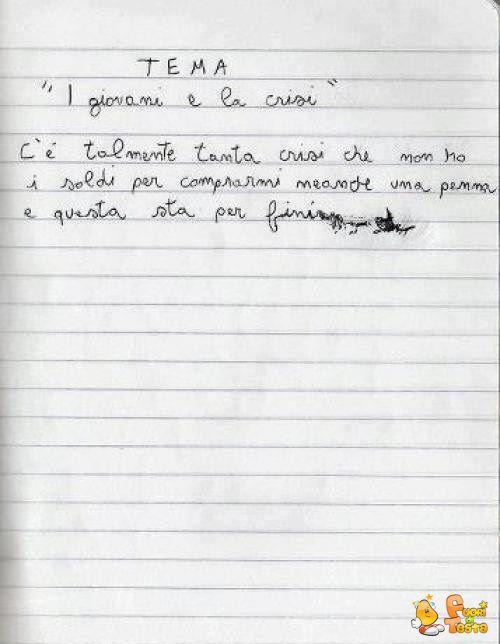 TEMA
"I giovani e la crisi"
C'é talmente tanta crisi che non ho
i soldi per comprarmi neanche una penna
e questa sta per fini
Fuori
di
Testa